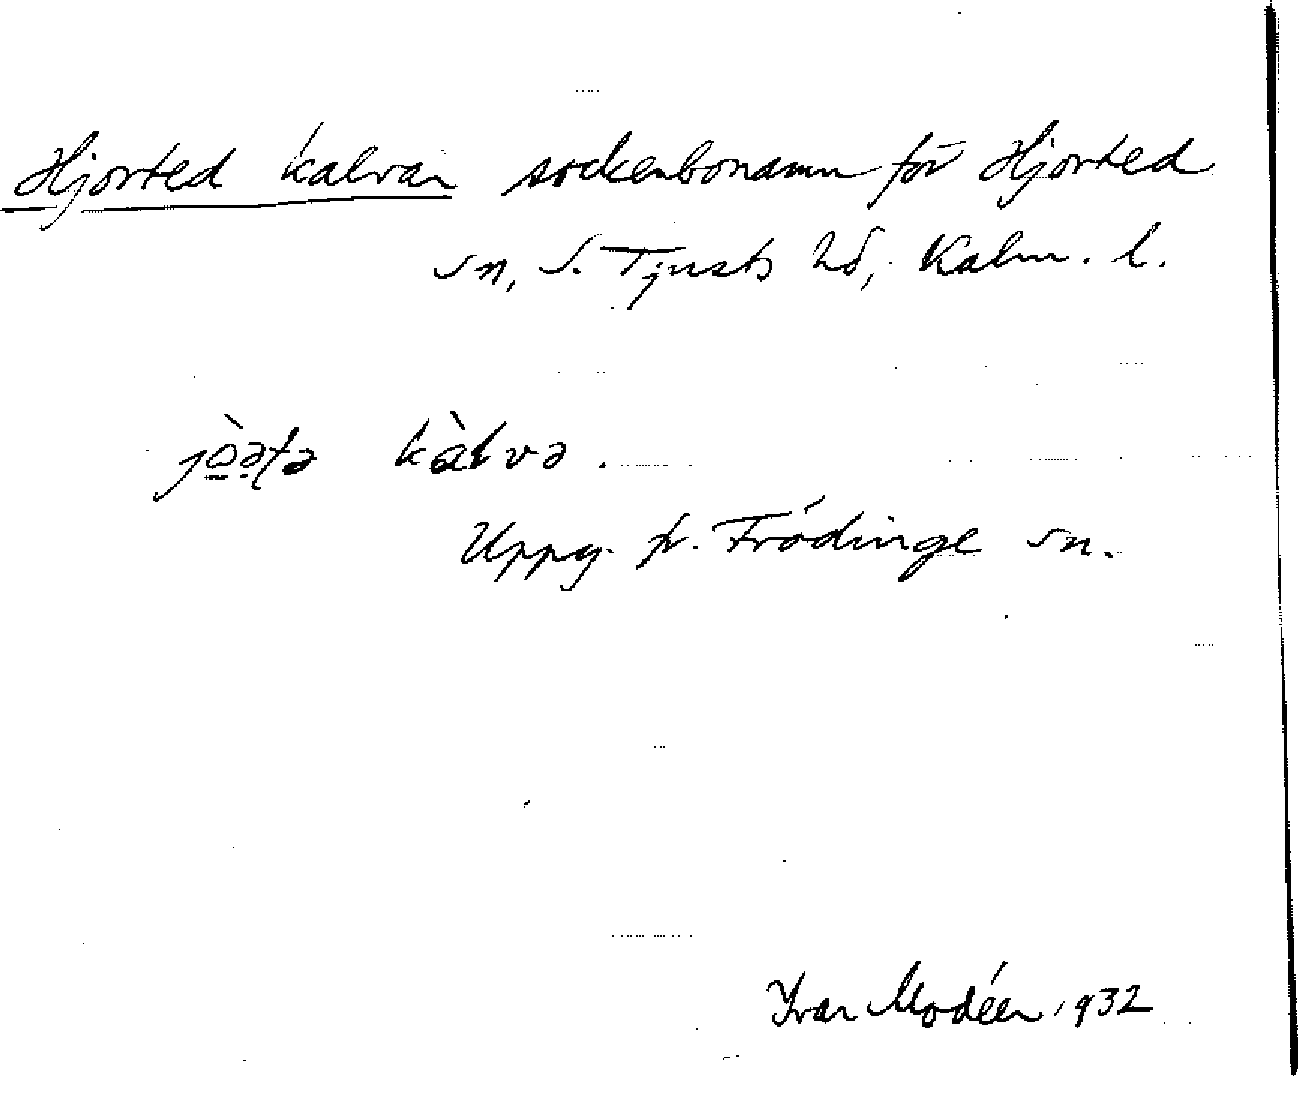 Hjorted kalvar sockenbonamn för Hjorted
sn, S. Tjusts hd, Kalm. l.
jò̲ə̣ṭə kàlvə.
Uppg. fr. Frödinge sn.
Ivar Modéer 1932